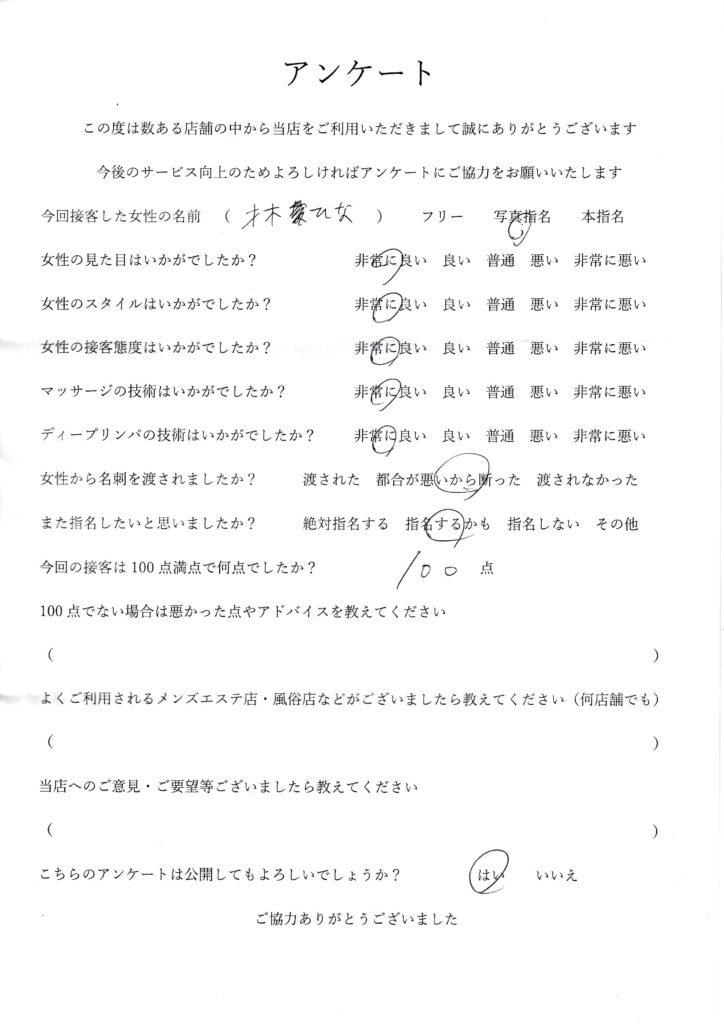 アンケート
この度は数ある店舗の中から当店をご利用いただきまして誠にありがとうございます
今後のサービス向上のためよろしければアンケートにご協力をお願いいたします
今回接客した女性の名前 （ 林愛ひな ） フリー 写真指名 本指名
女性の見た目はいかがでしたか？ 非常に良い 良い 普通 悪い 非常に悪い
女性のスタイルはいかがでしたか？ 非常に良い 良い 普通 悪い 非常に悪い
女性の接客態度はいかがでしたか？ 非常に良い 良い 普通 悪い 非常に悪い
マッサージの技術はいかがでしたか？ 非常に良い 良い 普通 悪い 非常に悪い
ディープリンパの技術はいかがでしたか？ 非常に良い 良い 普通 悪い 非常に悪い
女性から名刺を渡されましたか？ 渡された 都合が悪いから断った 渡されなかった
また指名したいと思いましたか？ 絶対指名する 指名するかも 指名しない その他
今回の接客は100点満点で何点でしたか？ 100 点
100点でない場合は悪かった点やアドバイスを教えてください
（ ）
よくご利用されるメンズエステ店・風俗店などがございましたら教えてください（何店舗でも）
（ ）
当店へのご意見・ご要望等ございましたら教えてください
（ ）
こちらのアンケートは公開してもよろしいでしょうか？ はい いいえ
ご協力ありがとうございました